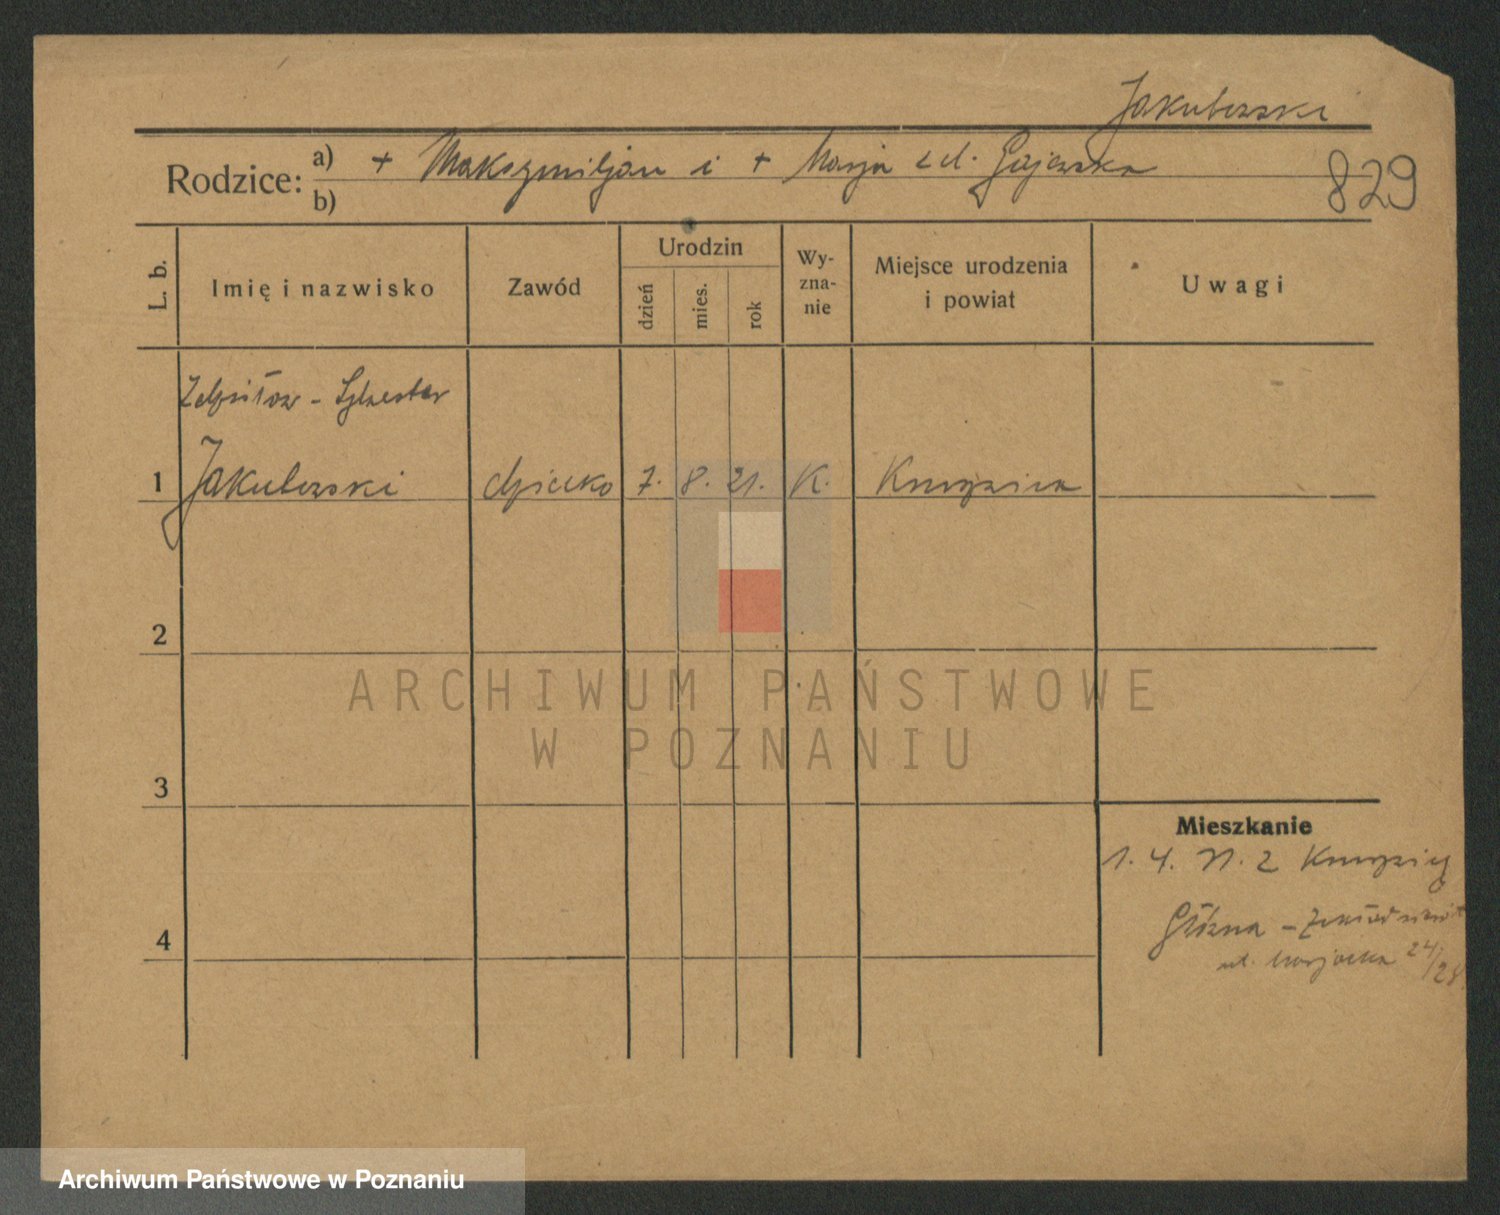 Jakubowski
Rodzice: a) + Maksymiljan i + Marja z d. Gajewska
b)
829
L. b.
Imię i nazwisko
Zawód
Urodzin
dzień
mies.
rok
Wy-
zna-
nie
Miejsce urodzenia
i powiat
Uwagi
Zdzisław - Sylwester
1 Jakubowski dziecko 7. 8. 21. K.
2
ARCHIWUM PAŃSTWOWE
W POZNANIU
3
Mieszkanie
1. 4. 21. 2
Główna -
4
ul.
24/28
Archiwum Państwowe w Poznaniu